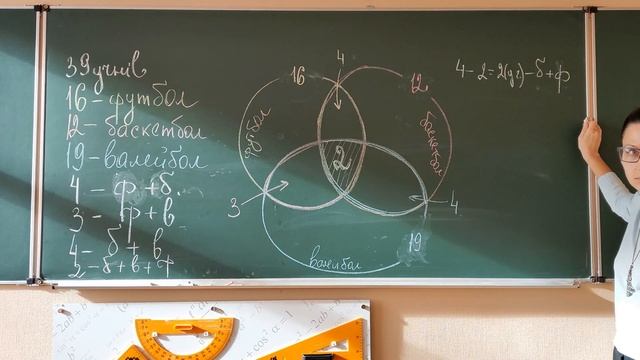 39 учнів
16 – футбол
12 – баскетбол
19 – валейбол
4 – ф + б.
3 – ф + в
4 – б + в
2 – б + в + ф
4
16
12
футбол
баскетбол
2
3
4
19
валейбол
4 – 2 = 2(уч) – б + ф